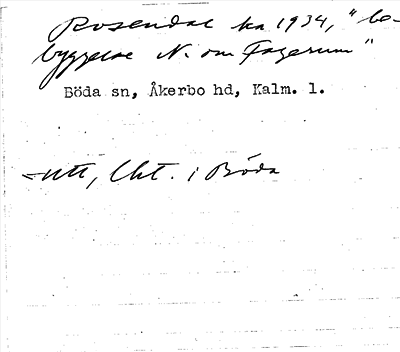 Rosendal ka 1934, "be-
byggelse N. om Fagerum"
Böda sn, Åkerbo hd, Kalm. l.
utt, Uht. i Böda